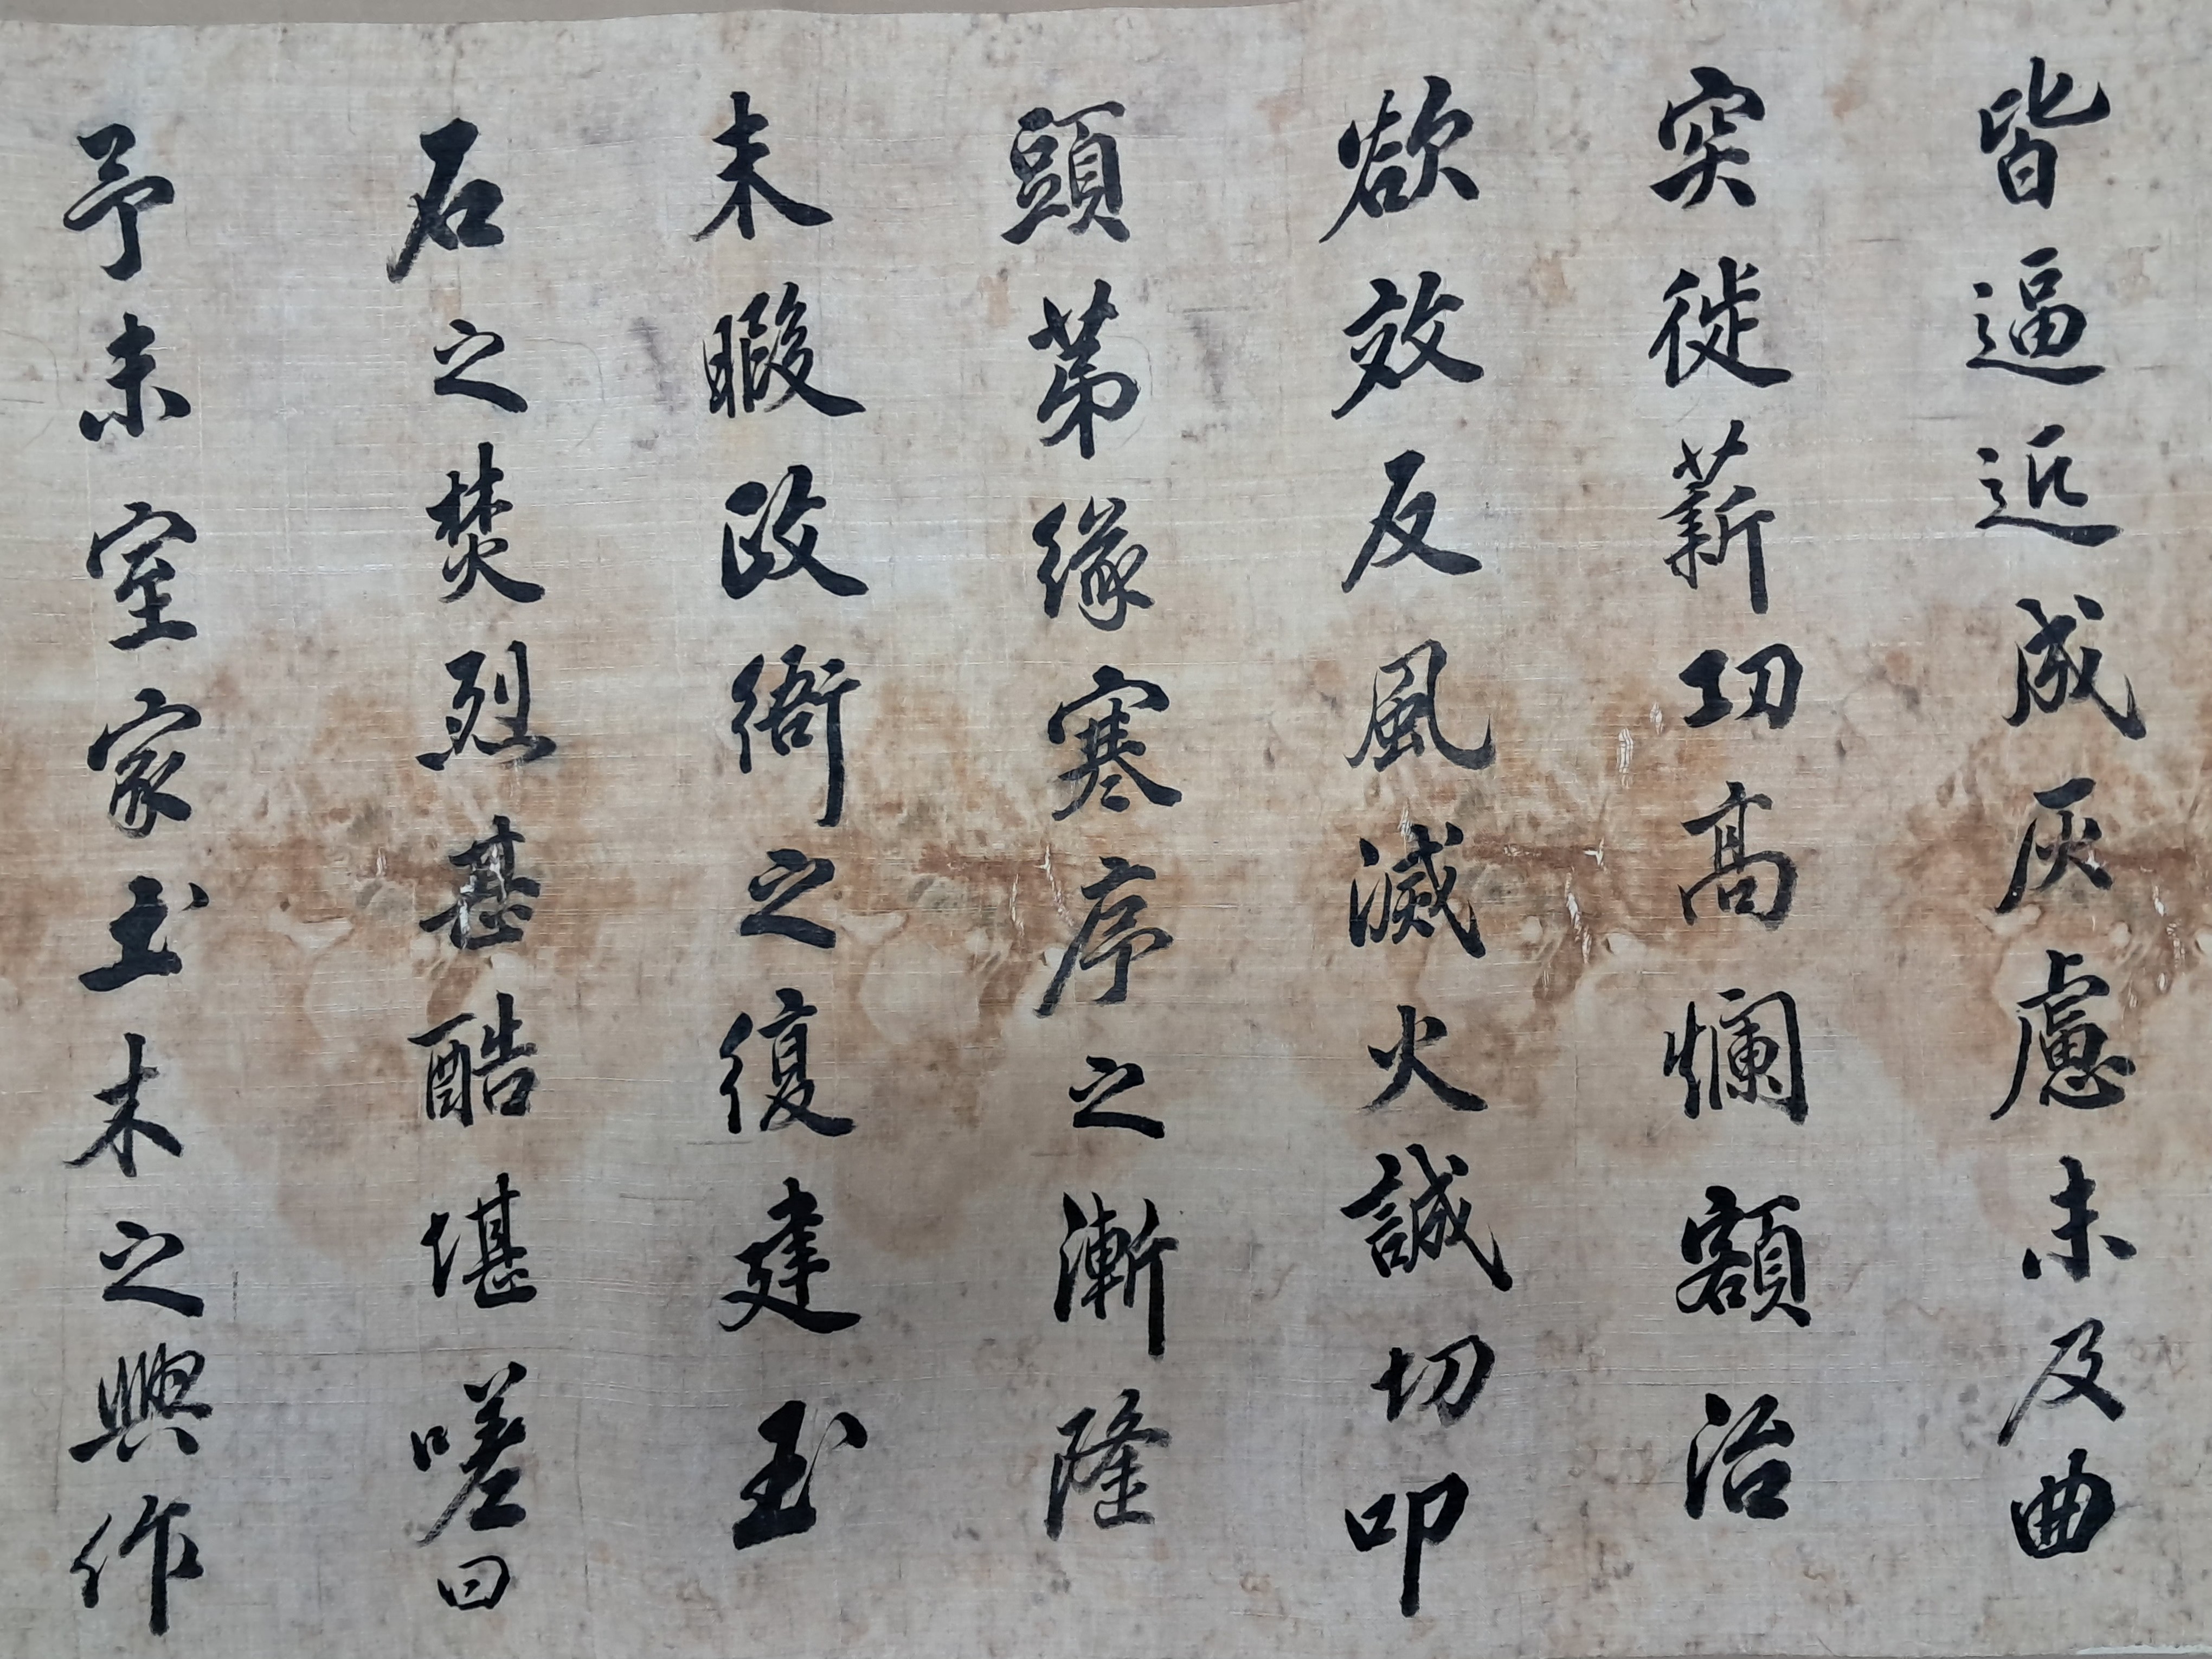 皆逼近成灰慮未及曲
突徙薪功高爛額治
欲效反風滅火誠切叩
頭第緣寒序之漸隆
未暇政衙之復建玉
石之焚烈甚酷堪嗟曰
予未室家土木之興作